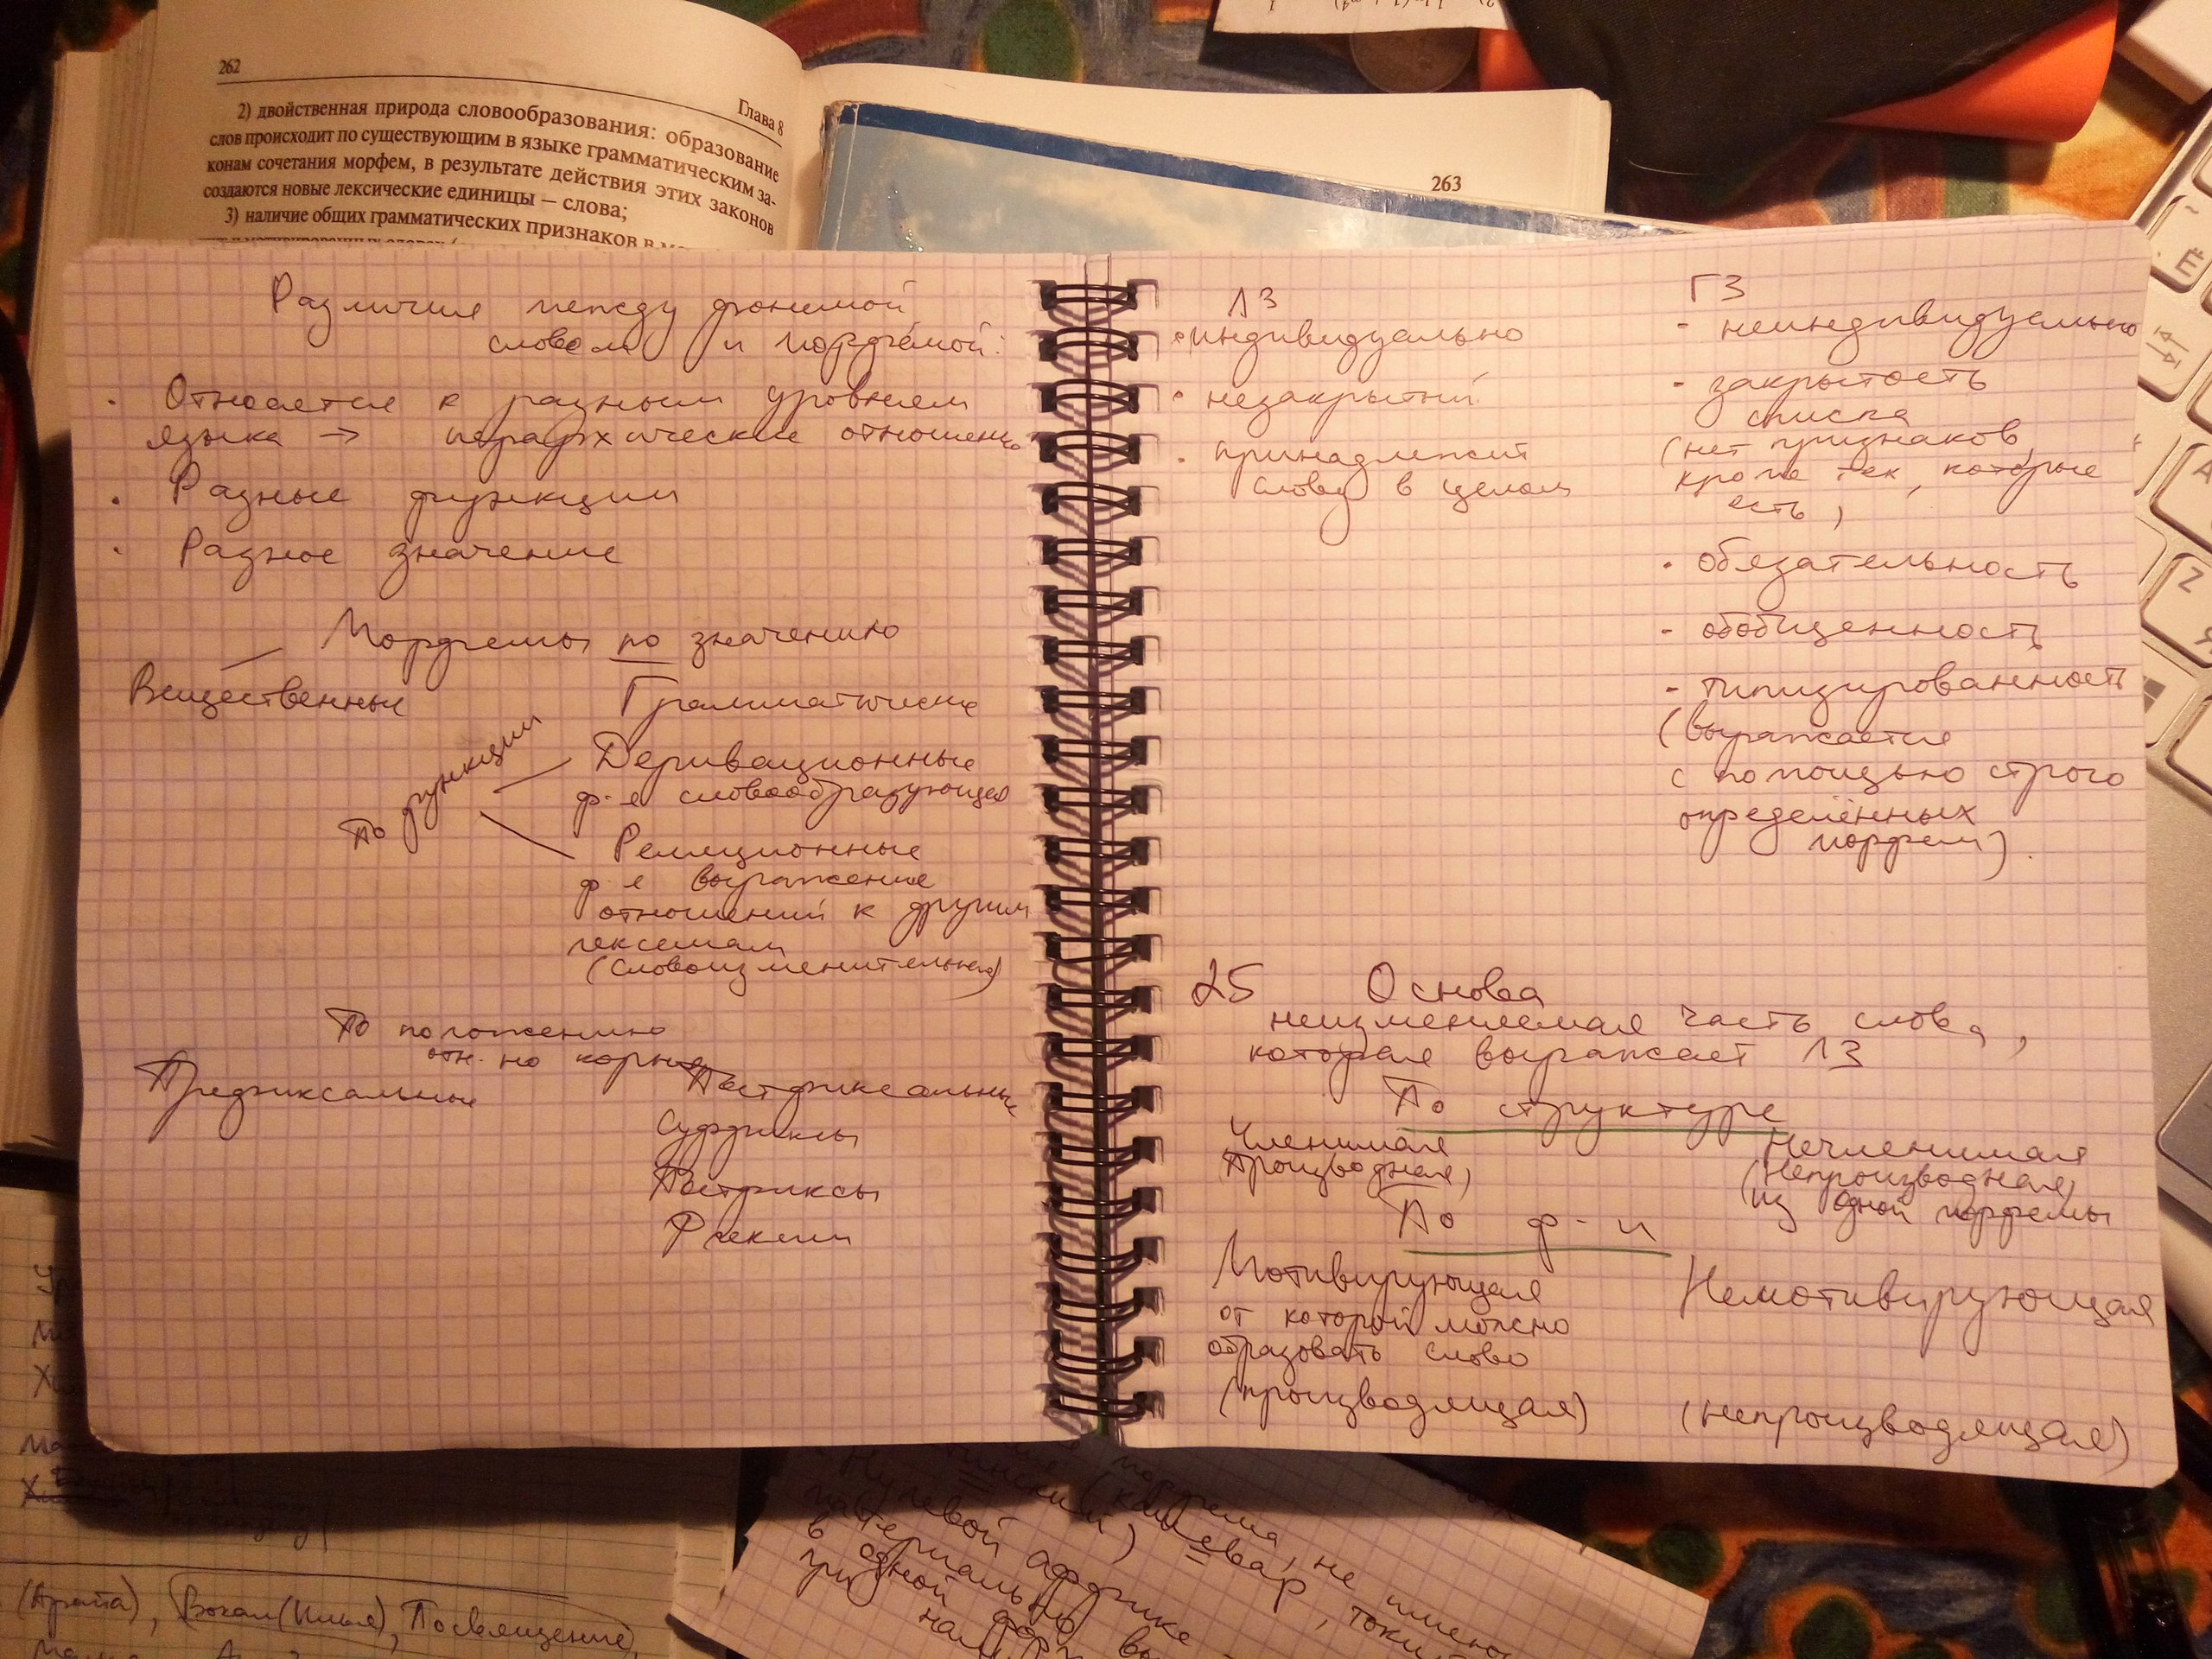 262
Глава 8
2) двойственная природа словообразования: образование
слов происходит по существующим в языке грамматическим за-
конам сочетания морфем, в результате действия этих законов
создаются новые лексические единицы – слова;
3) наличие общих грамматических признаков в
263
Различия между фонемой
словом и морфемой:
· Относятся к разным уровням
языка → иерархические отношения
· Разные функции
· Разное значение
Морфемы по значению
Вещественные
Грамматические
По функции
Деривационные
ф-я словообразующая
Реляционные
ф-я выражение
отношений к другим
лексемам
(словоизменительная)
По положению
отн-но корня
Префиксальные
Постфиксальные
Суффиксы
Постфиксы
Флексии
ЛЗ
· индивидуально
· незакрытый
· принадлежит
слову в целом
ГЗ
- неиндивидуально
- закрытость
списка
(нет признаков,
кроме тех, которые
есть)
- обязательность
- обобщенность
- типизированность
(выражается
с помощью строго
определённых
морфем).
25 Основа
неизменяемая часть слова,
которая выражает ЛЗ
По структуре
Членимая
производная)
Нечленимая
(Непроизводная)
из одной морфемы
По ф-и
Мотивирующая
от которой можно
образовать слово
(производящая)
Немотивирующая
(непроизводящая)
Ё
A
Z
Я
(Арата), Вокал (Илья), Посвящение,
морфема, не
Нулевой аффикс
материально
в одной